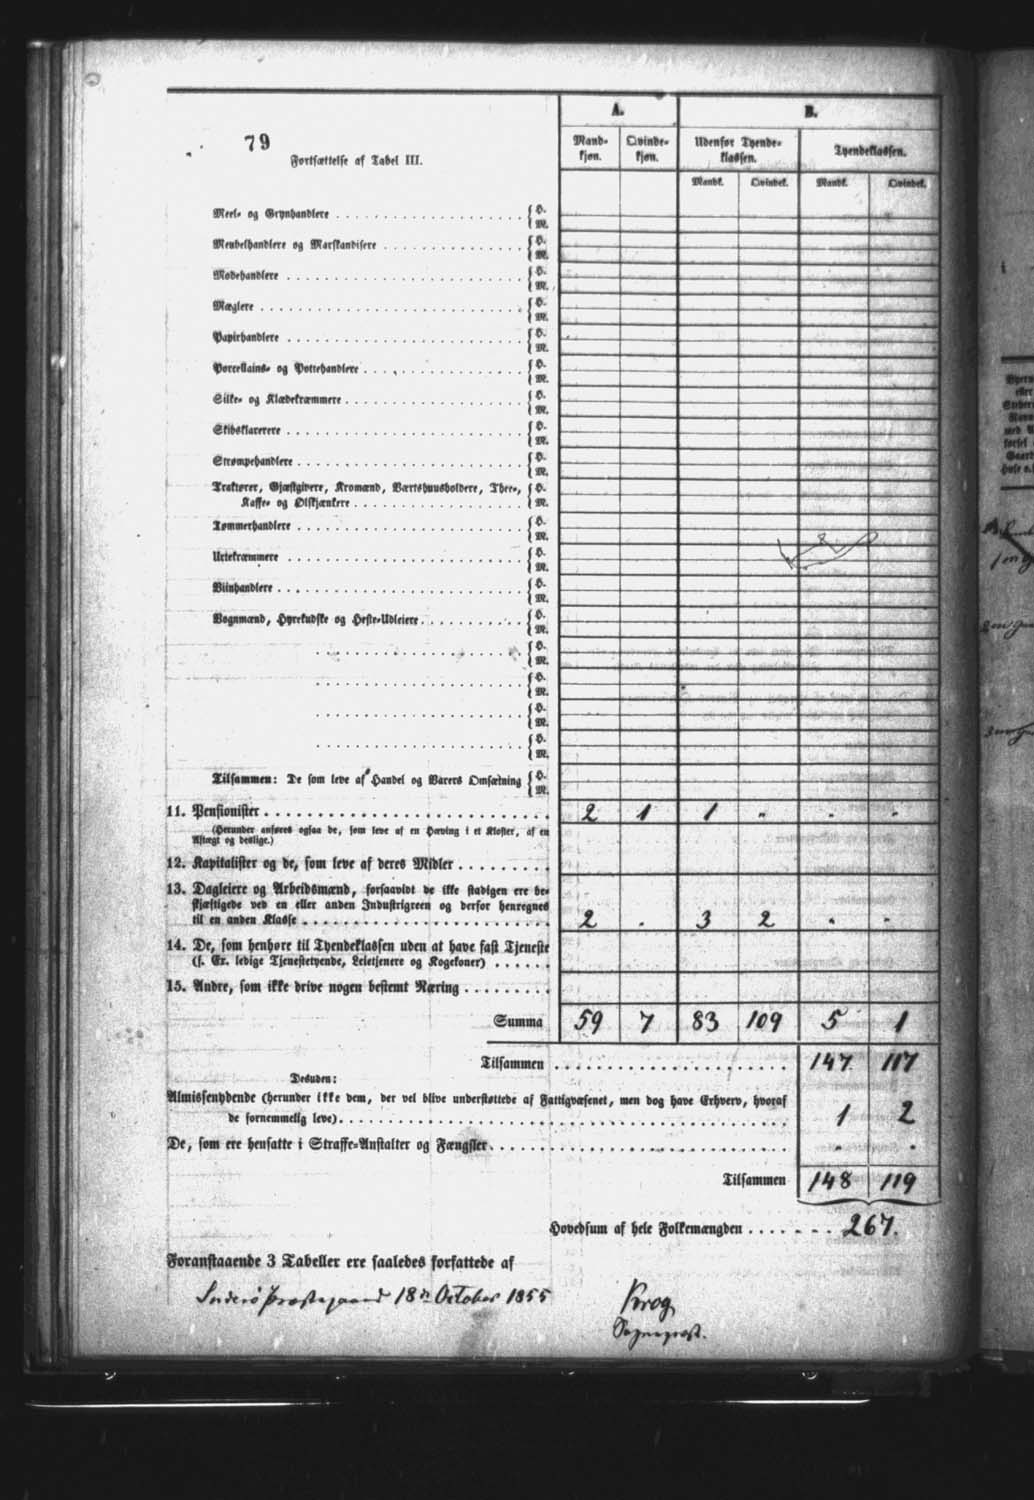 79
Fortsættelse af Tabel III.
A. B.
Mandkjøn. Qvindekjøn. Udenfor Tyendeklassen. Tyendeklassen.
Mandk. Qvindek. Mandk. Qvindek.
Meel- og Grynhandlere { H. M.
Meubelhandlere og Marskandisere { H. M.
Modehandlere { H. M.
Mæglere { H. M.
Papirhandlere { H. M.
Porcellains- og Pottehandlere { H. M.
Silke- og Klædekræmmere { H. M.
Skibsklarerere { H. M.
Strømpehandlere { H. M.
Traktører, Gjæstgivere, Kromænd, Værtshuusholdere, Thee-,
Kaffe- og Ølskjænkere { H. M.
Tømmerhandlere { H. M.
Urtekræmmere { H. M.
Viinhandlere { H. M.
Vognmænd, Hyrekudske og Heste-Udleiere { H. M.
{ H. M.
{ H. M.
{ H. M.
{ H. M.
Tilsammen: De som leve af Handel og Varers Omsætning { H. M.
11. Pensionister 2 1 1 " " "
(Herunder anføres ogsaa de, som leve af en Hæving i et Kloster, af en
Aftægt og deslige.)
12. Kapitalister og de, som leve af deres Midler
13. Dagleiere og Arbeidsmænd, forsaavidt de ikke stadigen ere be-
skjæftigede ved en eller anden Industrigreen og derfor henregnes
til en anden Klasse 2 " 3 2 " "
14. De, som henhøre til Tyendeklassen uden at have fast Tjeneste
(f. Ex. ledige Tjenestetyende, Leietjenere og Kogekoner)
15. Andre, som ikke drive nogen bestemt Næring
Summa 59 7 83 109 5 1
Tilsammen 147. 117
Desuden:
Almissenydende (herunder ikke dem, der vel blive understøttede af Fattigvæsenet, men dog have Erhverv, hvoraf
de fornemmelig leve) 1 2
De, som ere hensatte i Straffe-Anstalter og Fængsler " "
Tilsammen 148 119
Hovedsum af hele Folkemængden 267.
Foranstaaende 3 Tabeller ere saaledes forfattede af
Præstegaard 18n October 1855 Krog
Sognepræst.